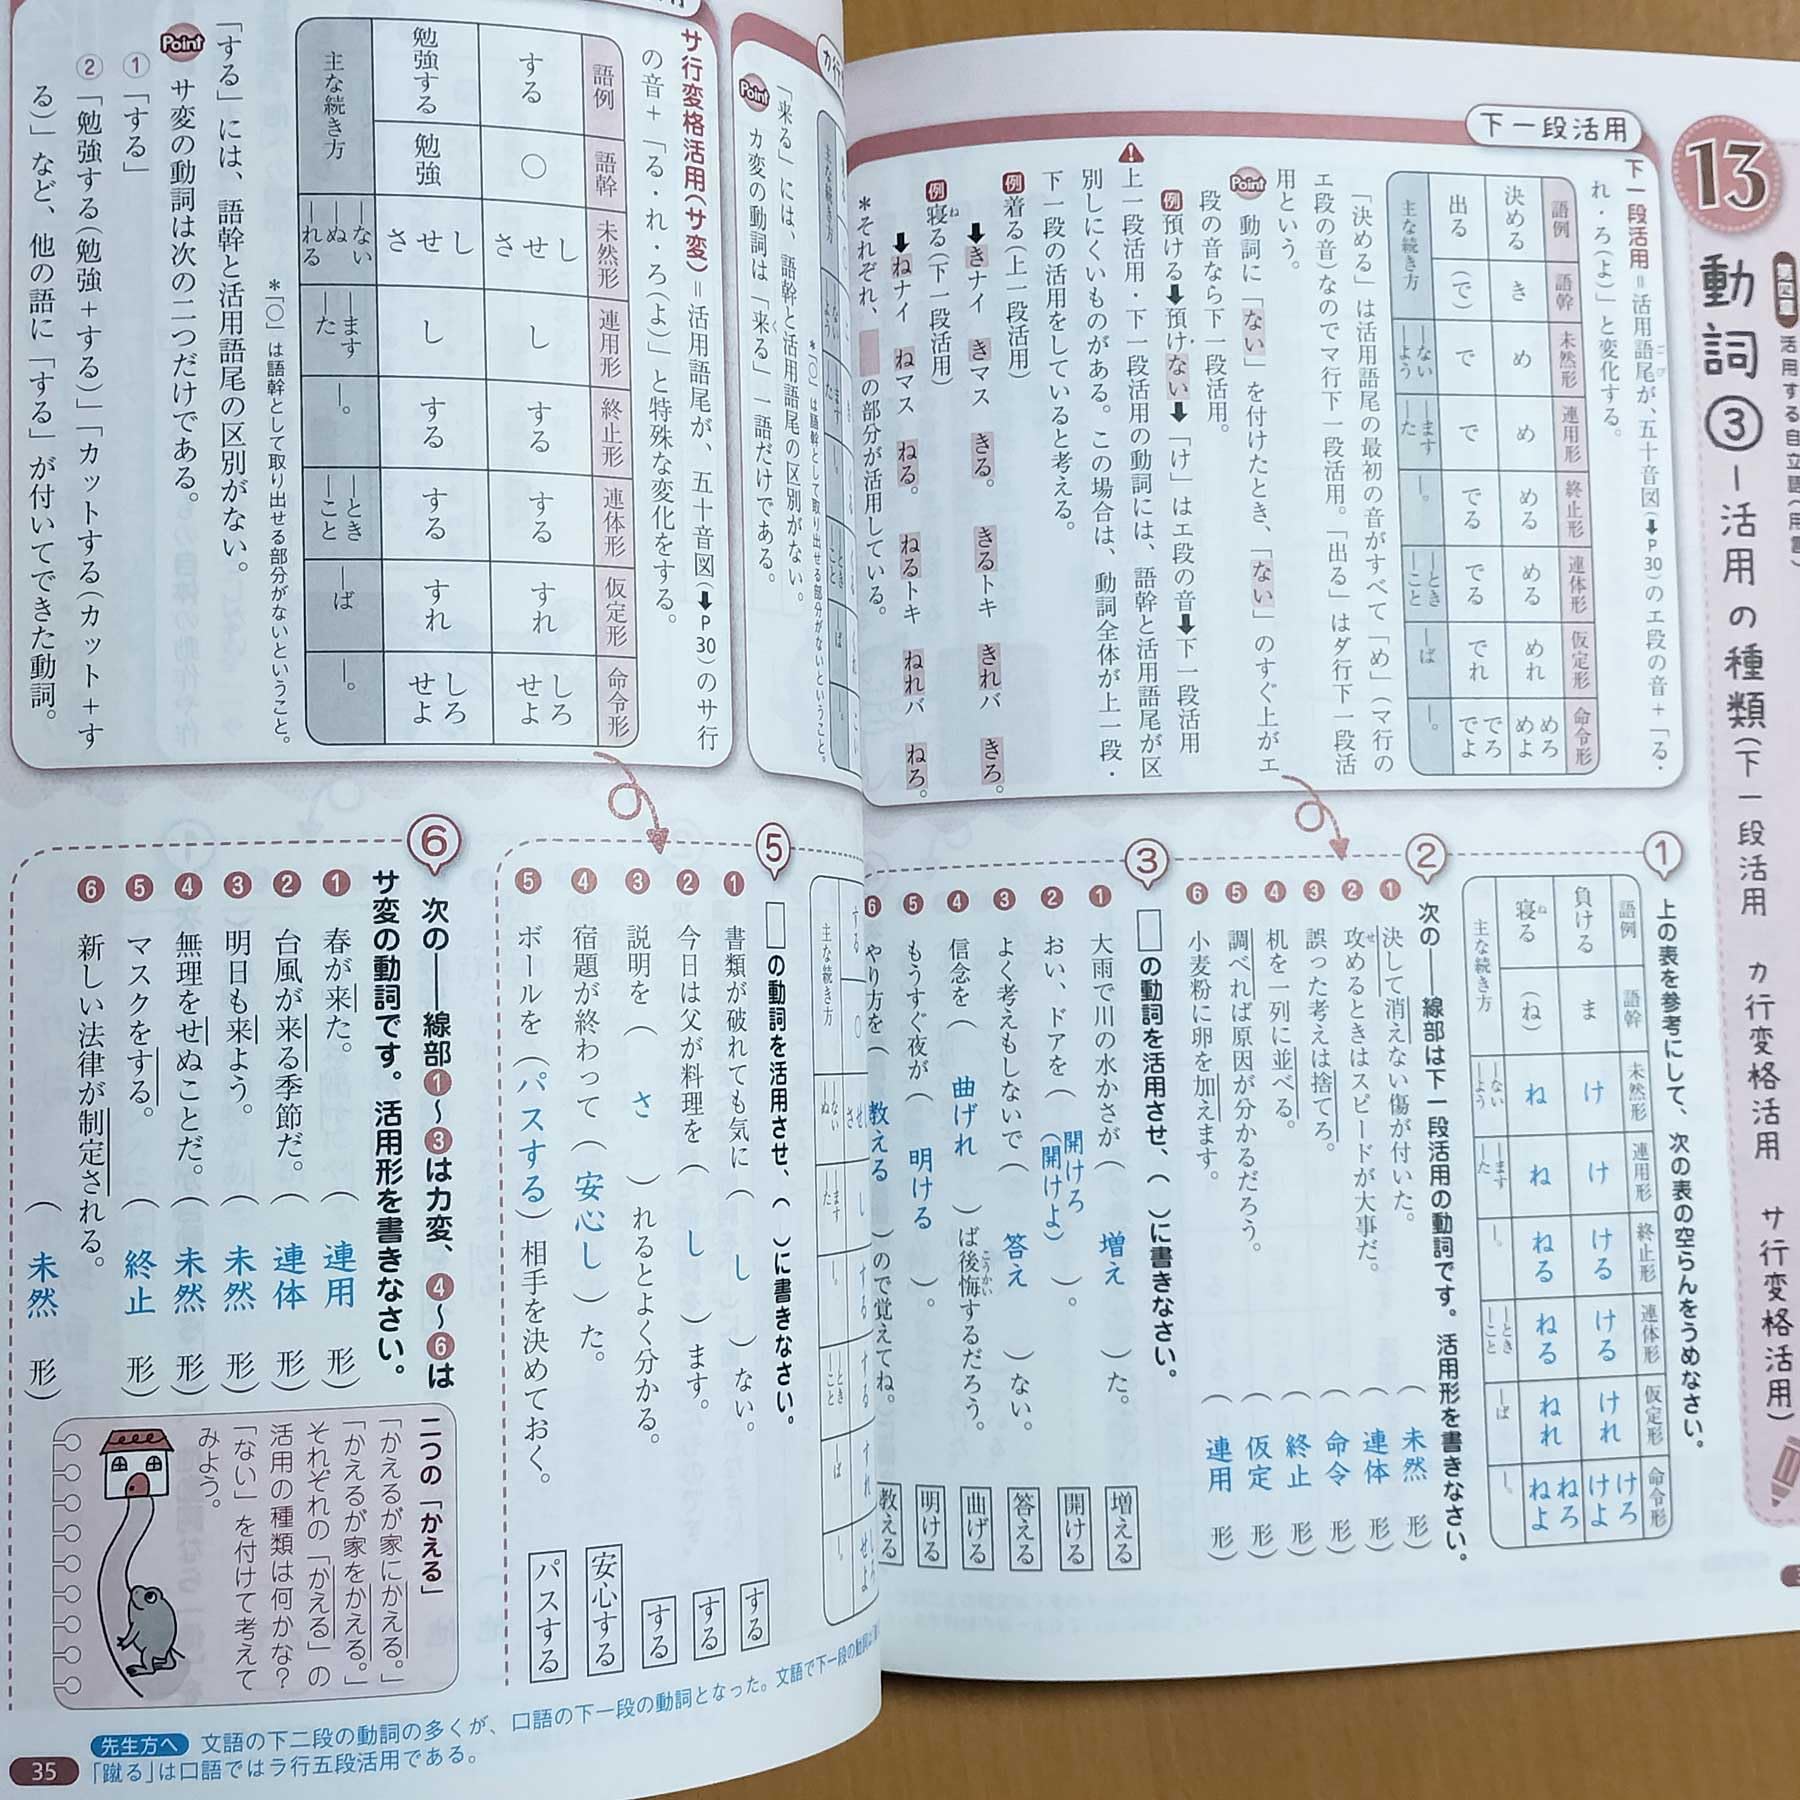 13
動詞③―活用の種類(下一段活用 カ行変格活用 サ行変格活用)
下一段活用
下一段活用=活用語尾が、五十音図(➡P30)のエ段の音+「る・
れ・ろ(よ)」と変化する。
語例 語幹 未然形 連用形 終止形 連体形 仮定形 命令形
決める き め め める める めれ めろ めよ
出る (で) で で でる でる でれ でろ でよ
主な続き方 ―ない ―よう ―ます ―た ―。 ―とき ―こと ―ば ―。
「決める」は活用語尾の最初の音がすべて「め」(マ行の
エ段の音)なのでマ行下一段活用。「出る」はダ行下一段活
用という。
Point 動詞に「ない」を付けたとき、「ない」のすぐ上がエ
段の音なら下一段活用。
例 預ける➡預けない➡「け」はエ段の音➡下一段活用
上一段活用・下一段活用の動詞には、語幹と活用語尾が区
別しにくいものがある。この場合は、動詞全体が上一段・
下一段の活用をしていると考える。
例 着る(上一段活用)
➡きナイ きマス きる。 きるトキ きれバ きろ。
例 寝る(下一段活用)
ね
➡ねナイ ねマス ねる。 ねるトキ ねれバ ねろ。
*それぞれ、 の部分が活用している。
1 上の表を参考にして、次の表の空らんをうめなさい。
語例 語幹 未然形 連用形 終止形 連体形 仮定形 命令形
負ける ま け け ける ける けれ けろ けよ
寝る (ね) ね ね ねる ねる ねれ ねろ ねよ
ね
主な続き方 ―ない ―よう ―ます ―た ―。 ―とき ―こと ―ば ―。
2 次の――線部は下一段活用の動詞です。活用形を書きなさい。
1 決して消えない傷が付いた。 (未然 形)
2 攻めるときはスピードが大事だ。 (連体 形)
せ
3 誤った考えは捨てろ。 (命令 形)
4 机を一列に並べる。 (終止 形)
5 調べれば原因が分かるだろう。 (仮定 形)
6 小麦粉に卵を加えます。 (連用 形)
3 □の動詞を活用させ、( )に書きなさい。
1 大雨で川の水かさが( 増え )た。 増える
2 おい、ドアを( 開けろ (開けよ) )。 開ける
3 よく考えもしないで( 答え )ない。 答える
4 信念を( 曲げれ )ば後悔するだろう。 曲げる
こうかい
5 もうすぐ夜が( 明ける )。 明ける
6 やり方を( 教える )ので覚えてね。 教える
「来る」には、語幹と活用語尾の区別がない。
く
*「○」は語幹として取り出せる部分がないということ。
Point カ変の動詞は「来る」一語だけである。
サ行変格活用(サ変)=活用語尾が、五十音図(➡P30)のサ行
の音+「る・れ・ろ(よ)」と特殊な変化をする。
語例 語幹 未然形 連用形 終止形 連体形 仮定形 命令形
する ○ し せ さ し する する すれ しろ せよ
勉強する 勉強 し せ さ し する する すれ しろ せよ
主な続き方 ―ない ―ぬ ―れる ―ます ―た ―。 ―とき ―こと ―ば ―。
*「○」は語幹として取り出せる部分がないということ。
「する」には、語幹と活用語尾の区別がない。
Point サ変の動詞は次の二つだけである。
①「する」
②「勉強する(勉強+する)」「カットする(カット+す
る)」など、他の語に「する」が付いてできた動詞。
5 □の動詞を活用させ、( )に書きなさい。
1 書類が破れても気に( し )ない。 する
2 今日は父が料理を( し )ます。 する
3 説明を( さ )れるとよく分かる。 する
4 宿題が終わって(安心し)た。 安心する
5 ボールを(パスする)相手を決めておく。 パスする
6 次の――線部1~3はカ変、4~6は
サ変の動詞です。活用形を書きなさい。
1 春が来た。 (連用 形)
2 台風が来る季節だ。 (連体 形)
3 明日も来よう。 (未然 形)
4 無理をせぬことだ。 (未然 形)
5 マスクをする。 (終止 形)
6 新しい法律が制定される。 (未然 形)
二つの「かえる」
「かえるが家にかえる。」
「かえるが家をかえる。」
それぞれの「かえる」の
活用の種類は何かな?
「ない」を付けて考えて
みよう。
先生方へ 文語の下二段の動詞の多くが、口語の下一段の動詞となった。文語で下一段の動詞
「蹴る」は口語ではラ行五段活用である。
35